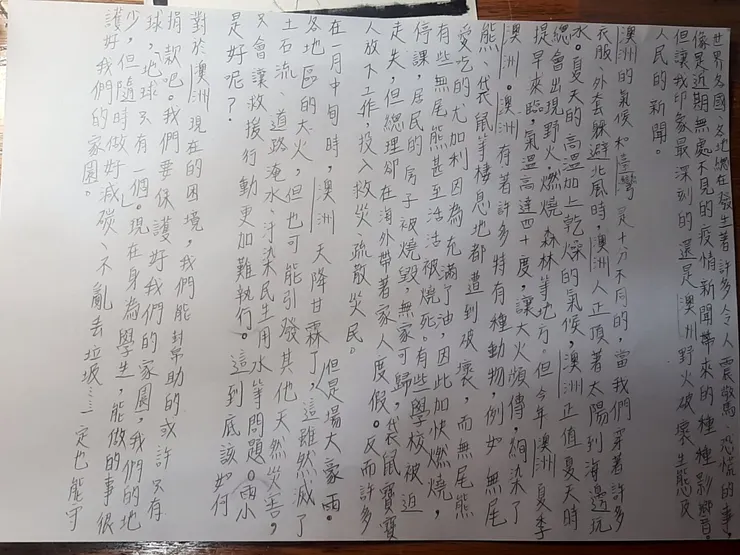 世界各國、各地總在發生著許多令人震驚、恐慌的事，
像是近期無處不見的疫情新聞帶來的種種影響。
但讓我印象最深刻的還是澳洲野火破壞生態及
人民的新聞。
澳洲的氣候和臺灣是十分不同的，當我們穿著許多
衣服、外套躲避北風時，澳洲人正頂著太陽到海邊玩
水。夏天的高溫加上乾燥的氣候，澳洲正值夏天時
總會出現野火燃燒森林等地方。但今年澳洲夏季
提早來臨氣溫高達四十度，讓大火頻傳，絢染了
澳洲。澳洲有著許多特有種動物，例如無尾
熊、袋鼠等棲息地都遭到破壞，而無尾熊
愛吃的尤加利因為充滿了油，因此加快燃燒，
有些無尾熊甚至活活被燒死。有些學校被迫
停課，居民的房子被燒毀，無家可歸，袋鼠寶寶
走失，但總理卻在海外帶著家人度假。反而許多
人放下工作，投入救災疏散災民。
在一月中旬時，澳洲天降甘霖了，但是場大豪雨。
各地區的大火，但也可能引發其他天然災害，這雖然滅了
土石流、道路淹水、汙染民生用水等問題。雨小
又會讓救援行動更加難執行。這到底該如何
是好呢？
對於澳洲現在的困境，我們能幫助的或許只有
捐款吧。我們要保護好我們的家園，我們的地
球，地球只有一個。現在身為學生，能做的事很
少，但隨時做好減碳、不亂丟垃圾⋯⋯一定也能守
護好我們的家園。